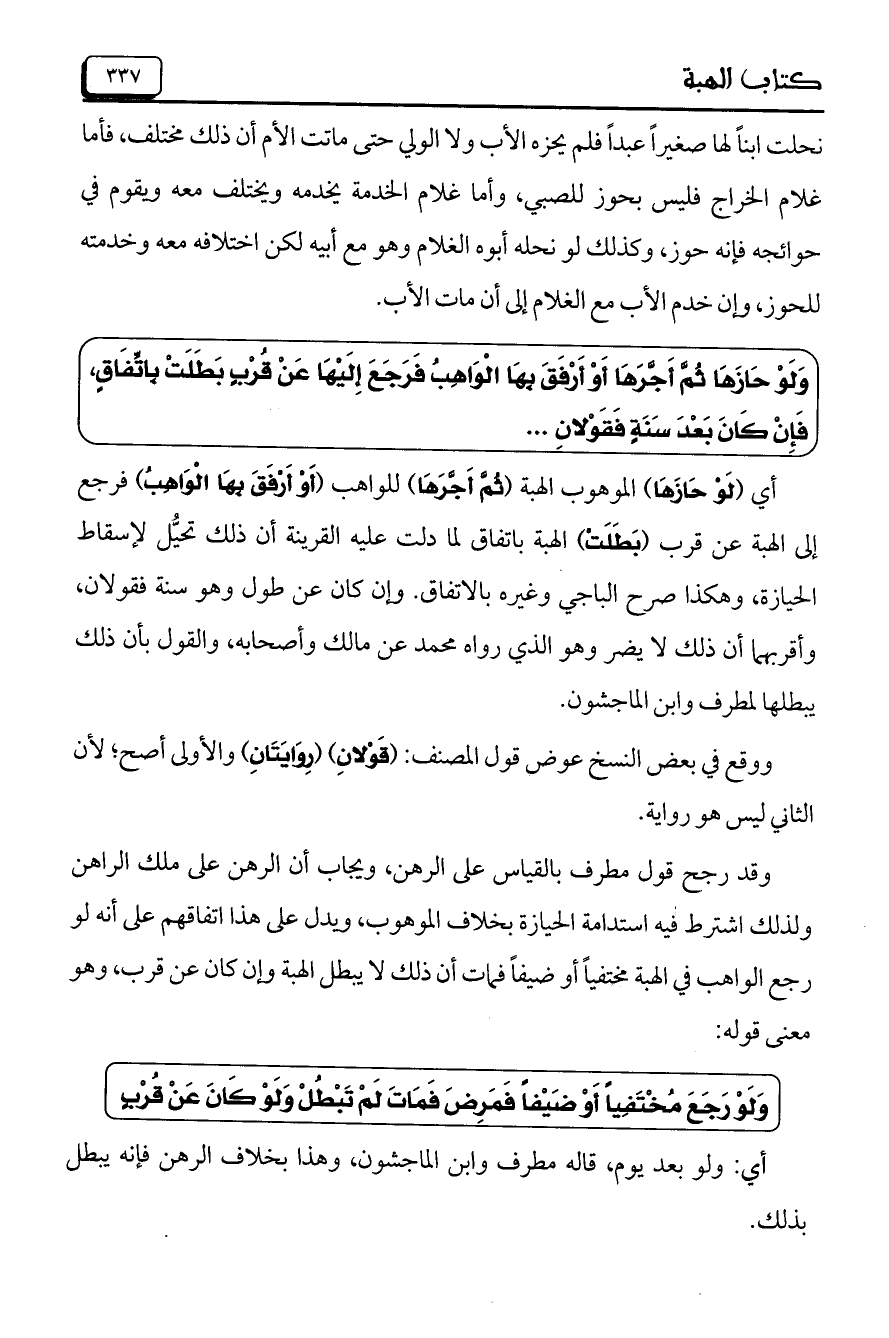 كتاب الهبة ٣٣٧
نحلت ابناً لها صغيراً عبداً فلم يحزه الأب ولا الولي حتى ماتت الأم أن ذلك مختلف، فأما
غلام الخراج فليس بحوز للصبي، وأما غلام الخدمة يخدمه ويختلف معه ويقوم في
حوائجه فإنه حوز، وكذلك لو نحله أبوه الغلام وهو مع أبيه لكن اختلافه معه وخدمته
للحوز، وإن خدم الأب مع الغلام إلى أن مات الأب.
وَلَوْ حَازَهَا ثُمَّ أَجَّرَهَا أَوْ أَرْفَقَ بِهَا الْوَاهِبُ فَرَجَعَ إِلَيْهَا عَنْ قُرْبٍ بَطَلَتْ بِاتِّفَاقٍ،
فَإِنْ كَانَ بَعْدَ سَنَةٍ فَقَوْلانِ ...
أي (لَوْ حَازَهَا) الموهوب الهبة (ثُمَّ أَجَّرَهَا) للواهب (أَوْ أَرْفَقَ بِهَا الْوَاهِبُ) فرجع
إلى الهبة عن قرب (بَطَلَتْ) الهبة باتفاق لما دلت عليه القرينة أن ذلك تحيُّل لإسقاط
الحيازة، وهكذا صرح الباجي وغيره بالاتفاق. وإن كان عن طول وهو سنة فقولان،
وأقربهما أن ذلك لا يضر وهو الذي رواه محمد عن مالك وأصحابه، والقول بأن ذلك
يبطلها لمطرف وابن الماجشون.
ووقع في بعض النسخ عوض قول المصنف: (قَوْلانِ) (رِوَايَتَانِ) والأولى أصح؛ لأن
الثاني ليس هو رواية.
وقد رجح قول مطرف بالقياس على الرهن، ويجاب أن الرهن على ملك الراهن
ولذلك اشترط فيه استدامة الحيازة بخلاف الموهوب، ويدل على هذا اتفاقهم على أنه لو
رجع الواهب في الهبة مختفياً أو ضيفاً فمات أن ذلك لا يبطل الهبة وإن كان عن قرب، وهو
معنى قوله:
وَلَوْ رَجَعَ مُخْتَفِياً أَوْ ضَيْفاً فَمَرِضَ فَمَاتَ لَمْ تَبْطُلْ وَلَوْ كَانَ عَنْ قُرْبٍ
أي: ولو بعد يوم، قاله مطرف وابن الماجشون، وهذا بخلاف الرهن فإنه يبطل
بذلك.